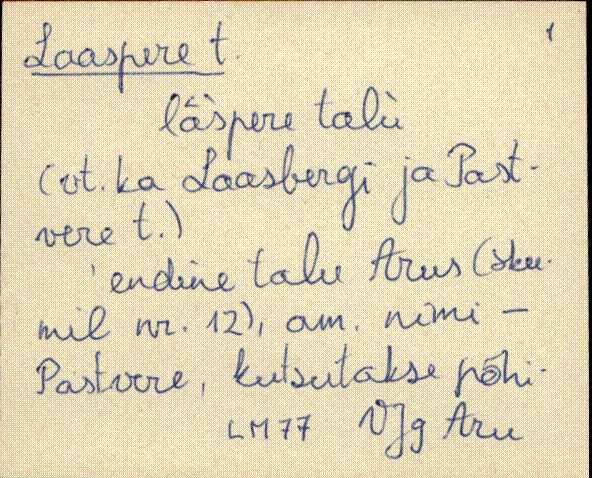 Laaspere t. 1
lä̀spere talù
(vt. ka Laasbergi ja Past-
vere t.)
'endine talu Arus (sku.
mil nr. 12), am. nimi –
Pastvere, kutsutakse põhi-
LM77 VJg Aru